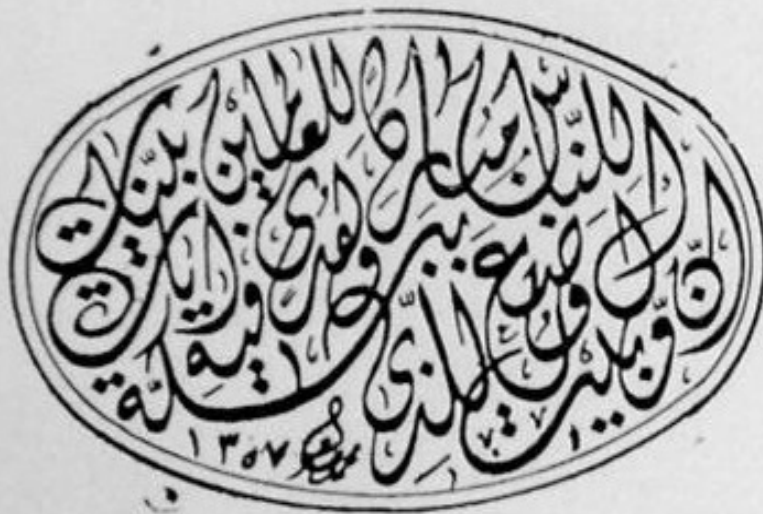 إنّ أوّل بيت وضع للنّاس للّذى ببكّة مباركا وهدى للعالمين فيه ايات بيّنات
١٣٥٧